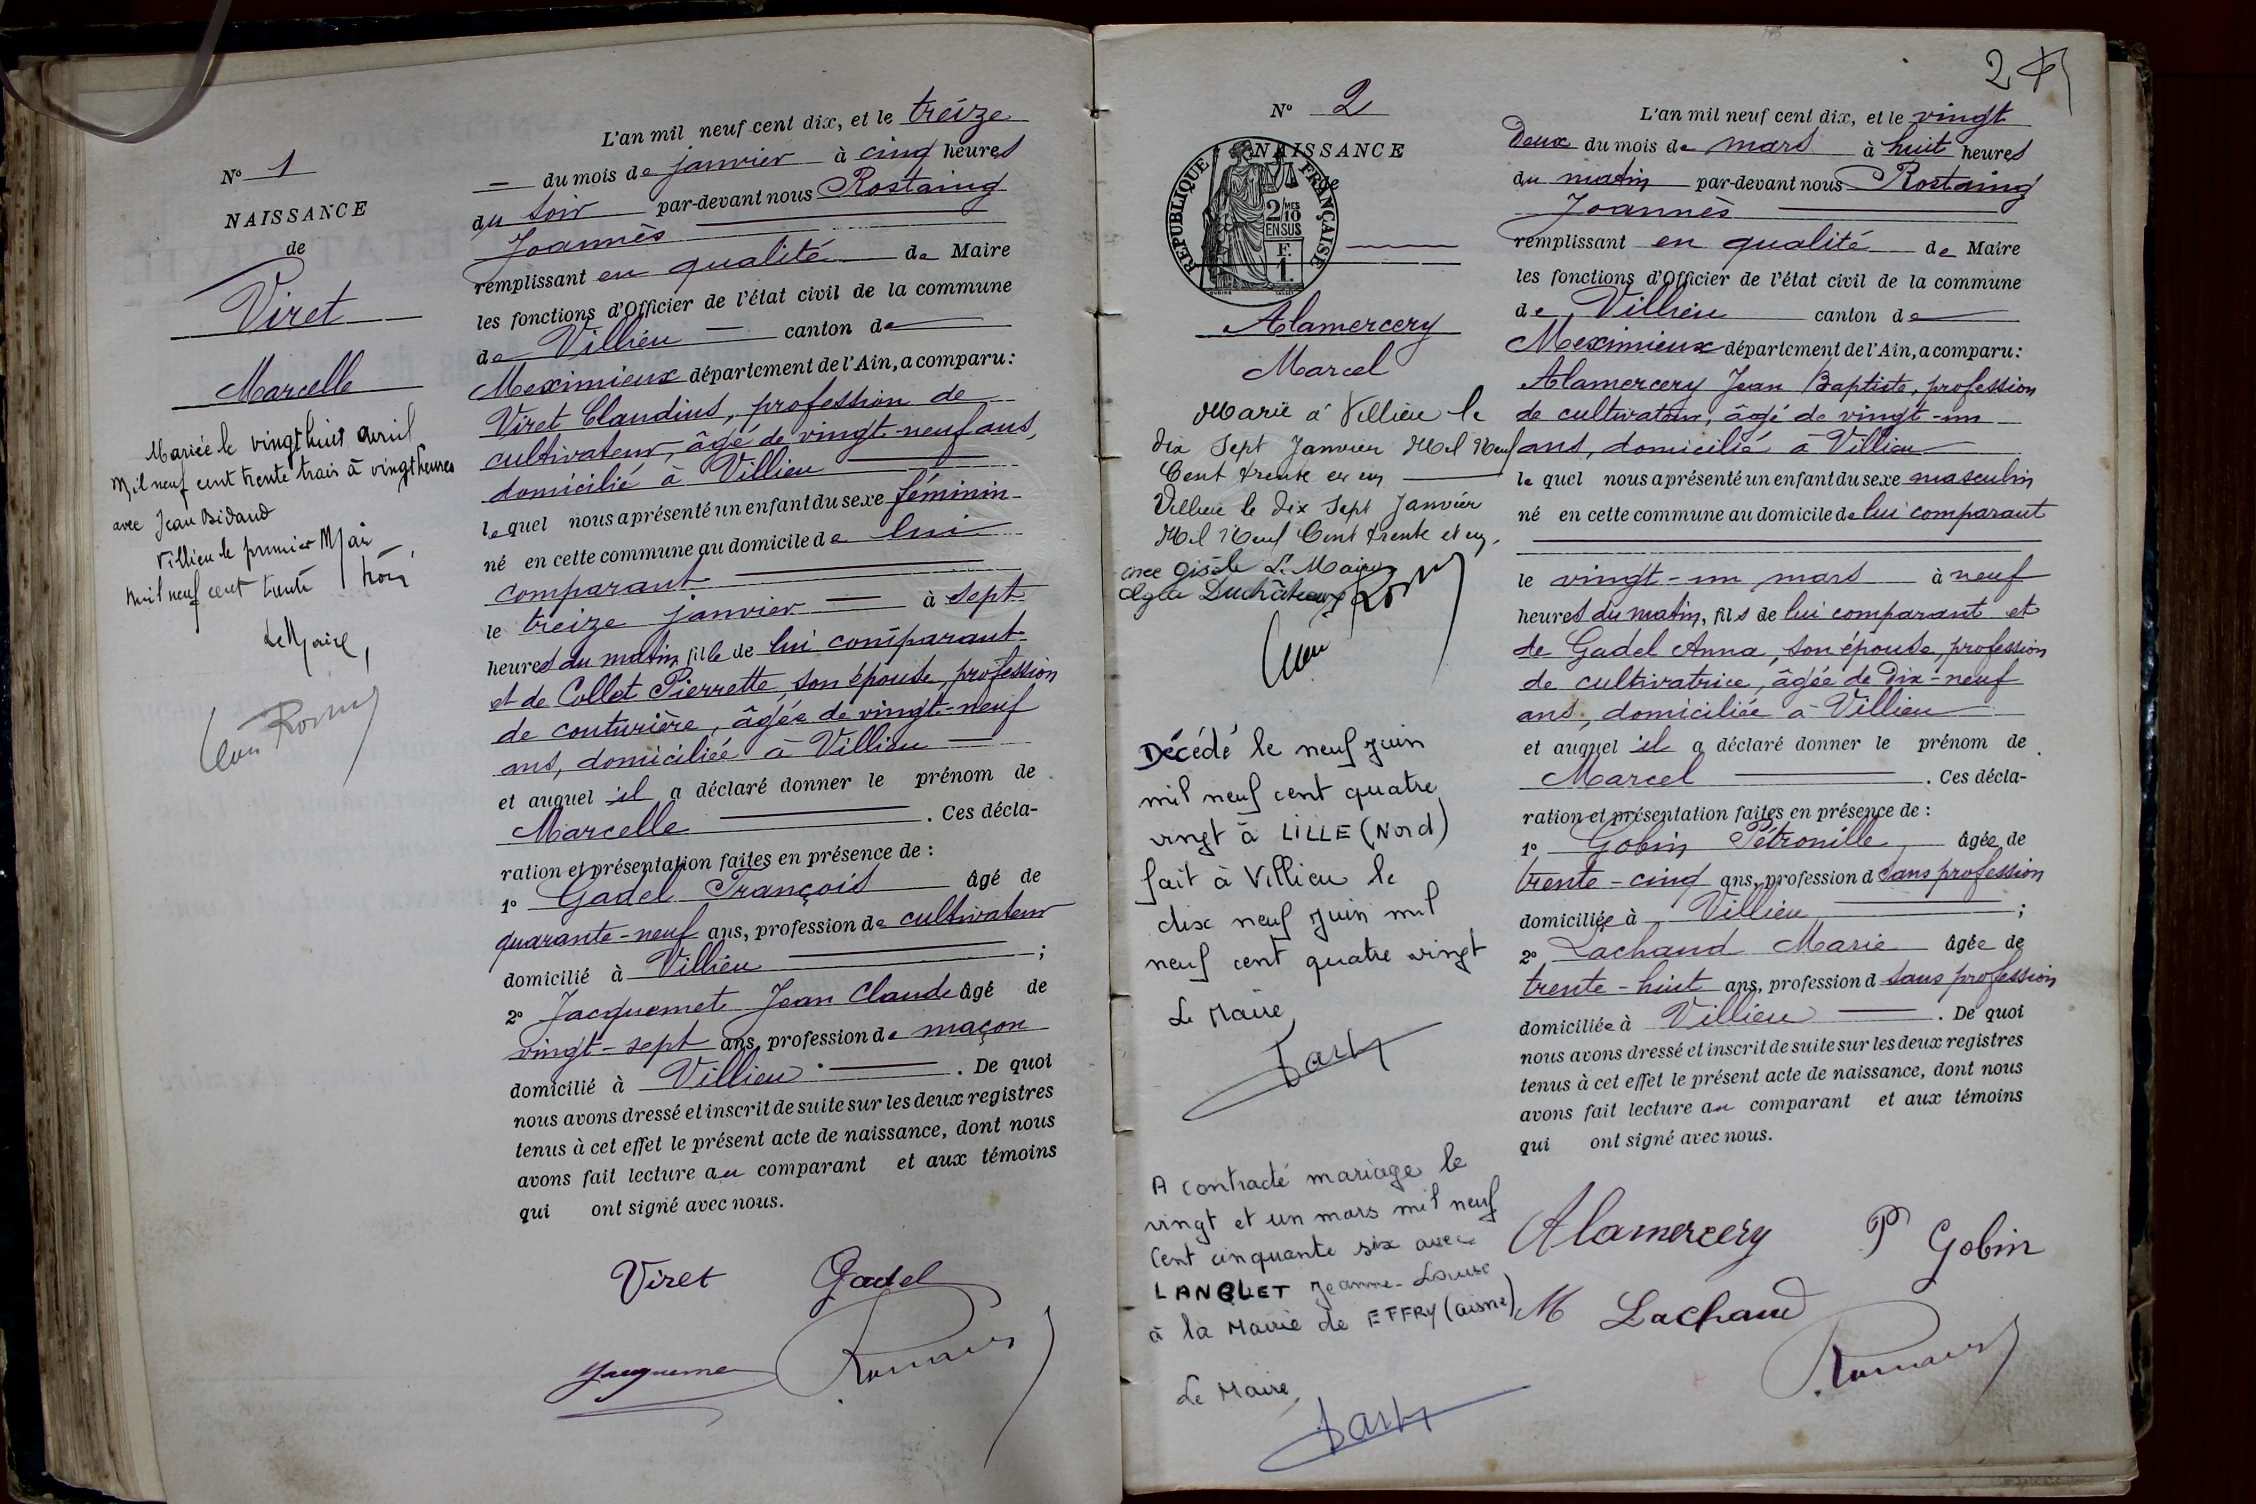 N° 1
NAISSANCE
de
Viret
Marcelle
Mariée le vingt huit avril
Mil neuf cent trente trois à vingt heures
avec Jean Bidaud
Villieu le premier Mai
Mil neuf cent trente trois
Le Maire,
L'an mil neuf cent dix, et le treize
du mois de janvier à cinq heures
du soir par-devant nous Rostaing
Joannès
remplissant en qualité de Maire
les fonctions d'Officier de l'état civil de la commune
de Villieu canton de
Meximieux département de l'Ain, a comparu:
Viret Claudius, profession de
cultivateur, âgé de vingt-neuf ans,
domicilié à Villieu
lequel nous a présenté un enfant du sexe féminin
né en cette commune au domicile de lui
comparant
le treize janvier à sept
heures du matin, fille de lui comparant
et de Collet Pierrette, son épouse, profession
de couturière, âgée de vingt-neuf
ans, domiciliée à Villieu
et auquel il a déclaré donner le prénom de
Marcelle . Ces décla-
ration et présentation faites en présence de :
1° Gadel François âgé de
quarante-neuf ans, profession de cultivateur
domicilié à Villieu ;
2° Jacquemet Jean Claude âgé de
vingt-sept ans, profession de maçon
domicilié à Villieu . De quoi
nous avons dressé et inscrit de suite sur les deux registres
tenus à cet effet le présent acte de naissance, dont nous
avons fait lecture au comparant et aux témoins
qui ont signé avec nous.
Viret Gadel
2
N° 2
NAISSANCE
de
RÉPUBLIQUE FRANÇAISE
2 MES
10
EN SUS
F.
1.
Alamercery
Marcel
Marié à Villieu le
dix sept Janvier Mil Neuf
Cent trente et un
Villieu le dix sept Janvier
Mil Neuf Cent trente et un.
avec Gisèle Le Maire
Duchâteau
Décédé le neuf juin
mil neuf cent quatre
vingt à LILLE (Nord)
fait à Villieu le
dix neuf juin mil
neuf cent quatre vingt
Le Maire,
A contracté mariage le
vingt et un mars mil neuf
Cent cinquante six avec
LANQUET Jeanne-Louise
à la Mairie de EFFRY (aisne)
Le Maire,
L'an mil neuf cent dix, et le vingt
Deux du mois de mars à huit heures
du matin par-devant nous Rostaing
Joannès
remplissant en qualité de Maire
les fonctions d'Officier de l'état civil de la commune
de Villieu canton de
Meximieux département de l'Ain, a comparu:
Alamercery Jean Baptiste, profession
de cultivateur, âgé de vingt-un
ans, domicilié à Villieu
lequel nous a présenté un enfant du sexe masculin
né en cette commune au domicile de lui comparant
le vingt-un mars à neuf
heures du matin, fils de lui comparant et
de Gadel Anna, son épouse, profession
de cultivatrice, âgée de Dix-neuf
ans, domiciliée à Villieu
et auquel il a déclaré donner le prénom de
Marcel . Ces décla-
ration et présentation faites en présence de :
1° Gobin Pétronille âgée de
trente-cinq ans, profession d sans profession
domiciliée à Villieu ;
2° Lachaud Marie âgée de
trente-huit ans, profession d sans profession
domiciliée à Villieu . De quoi
nous avons dressé et inscrit de suite sur les deux registres
tenus à cet effet le présent acte de naissance, dont nous
avons fait lecture au comparant et aux témoins
qui ont signé avec nous.
Alamercery P Gobin
M Lachaud